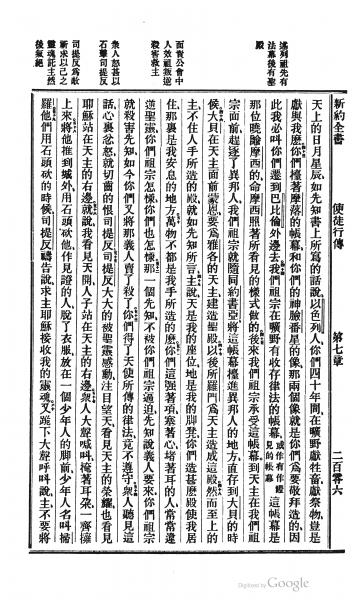 新約全書　使徒行傳　第七章　二百零六
述列祖先有
法幕後有聖
殿
面責公會中
人效祖叛逆
殺害救主
衆人怒甚以
石擊司提反
司提反求救
靈魂託主然
後氣絕
天上的日月星辰、如先知書上所寫的話說、以色列人你們四十年間在曠野獻牲畜獻祭物、豈是
獻與我麽、你們擡著摩落的帳幕、和你們的神臉番星的像、那兩個像就是你們爲要敬拜造的、因
此我必叫你們遷到巴比倫外邊去、我們祖宗在曠野有收存律法的帳幕、或作有作證見的帳幕這帳幕是
那位曉諭摩西的、命摩西照著所看見的樣式做的、後來我們祖宗承受這帳幕、到天主在我們祖
宗面前趕逐了異邦人、我們祖宗就隨同約書亞將這帳幕擡進異邦人的地方、直存到大闢的時
候、大闢在天主面前蒙恩、要爲雅各的天主建造聖殿、以後所羅門爲天主造成這殿、然而至上的
主不住人手所造的殿、就如先知所言、主說、天是我的座位、地是我的脚凳、你們造甚麽殿使我居
住、那裏是我安息的地方、萬物不都是我手所造的麽、你們這强著項、塞著心、堵著耳的人、常常違
逆聖靈、你們祖宗怎樣、你們也怎樣、那一個先知、不被你們祖宗逼迫、先知說義人要來、你們祖宗
就殺害先知、如今你們又將那義人賣了殺了、你們得了天使所傳的律法、竟不遵守、衆人聽見這
話、心裏忿怒、就切齒的恨司提反、司提反大大的被聖靈感動、注目望天、看見天主的榮耀、也看見
耶穌站在天主的右邊、就說、我看見天開人子站在天主的右邊、衆人大聲喊叫、掩著耳朵、一齊擁
上來、將他推到城外、用石頭砍他、作見證的人、脫了衣服放在一個少年人的脚前、少年人名叫掃
羅、他們用石頭砍的時候、司提反禱告說、求主耶穌接收我的靈魂、又跪下大聲呼叫說、主不要將
Digitized by Google